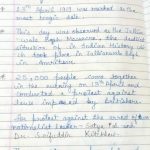 13th April 1919 was marked as the
most tragic date.
This day was observed as the Jallian
wala Bagh Massacre the
situation of in Indian History
took place in Jallianwala Bagh
in Amritsar
25,000 people came together
in the on 13th April and
conducted a protest against
house imposed by Britishers.
For protest against the arrest of
nationalist leader - Satya Pal and
Dr. Saifuddin Kitchlew